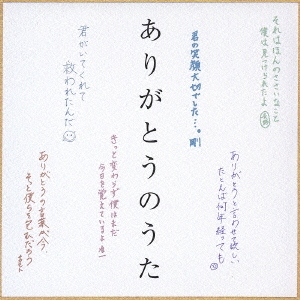 それはほんのささいなこと
僕は見つけられたよ
君の笑顔大切でした…。剛
ありがとうのうた
君がいてくれて
救われたんだ
きっと変わらず僕はまだ
今日を覚えているよ
ありがとうと言わせて欲しい
たとえば何年経っても
ありがとうの言葉が今、
そっと僕らを